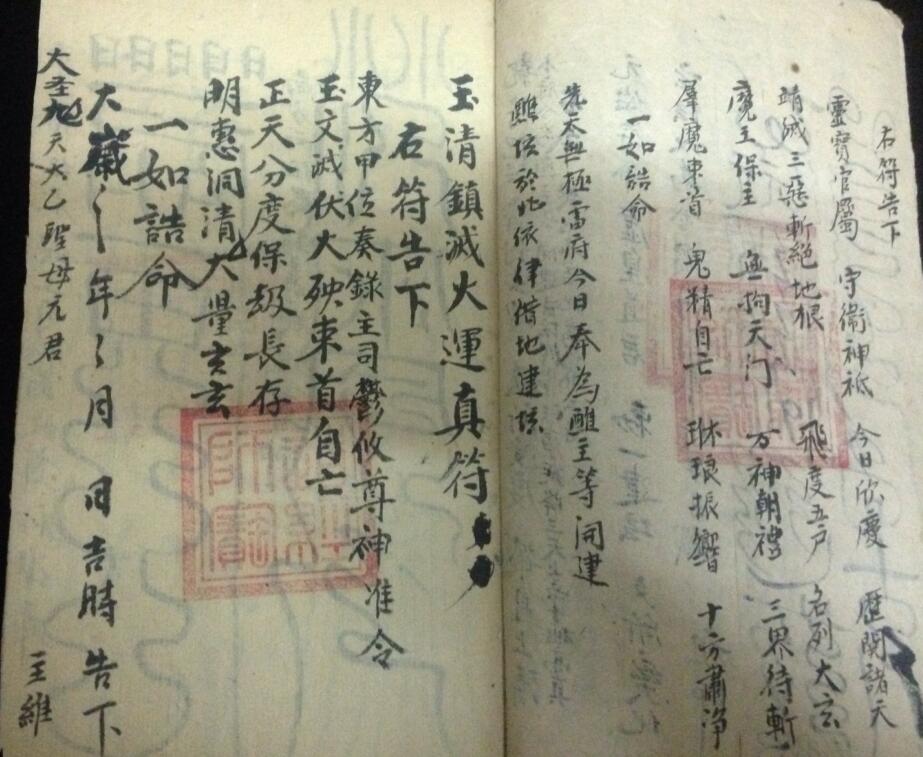 右符告下
靈寶官屬 守衛神祗 今日欣慶 歷關諸天
靖滅三惡斬絕地根 飛度五戶 名列太玄
魔王保主 無拘天門 万神朝禮 三界待斬
群魔束首 鬼精自亡 琳琅振響 十方肅淨
一如誥命
先太無極雷府今日奉為醮主等開建
醮垓於此依律借地建垓
玉清鎮滅火運真符
右符告下
東方甲位奏錄主司鬱攸尊神准令
玉文滅伏大殃束首自亡
正天分度保劫長存
明惠洞清大量玄玄
一如誥命
大嵗 年 月 日吉時告下
大圣九天大乙聖母元君 主維